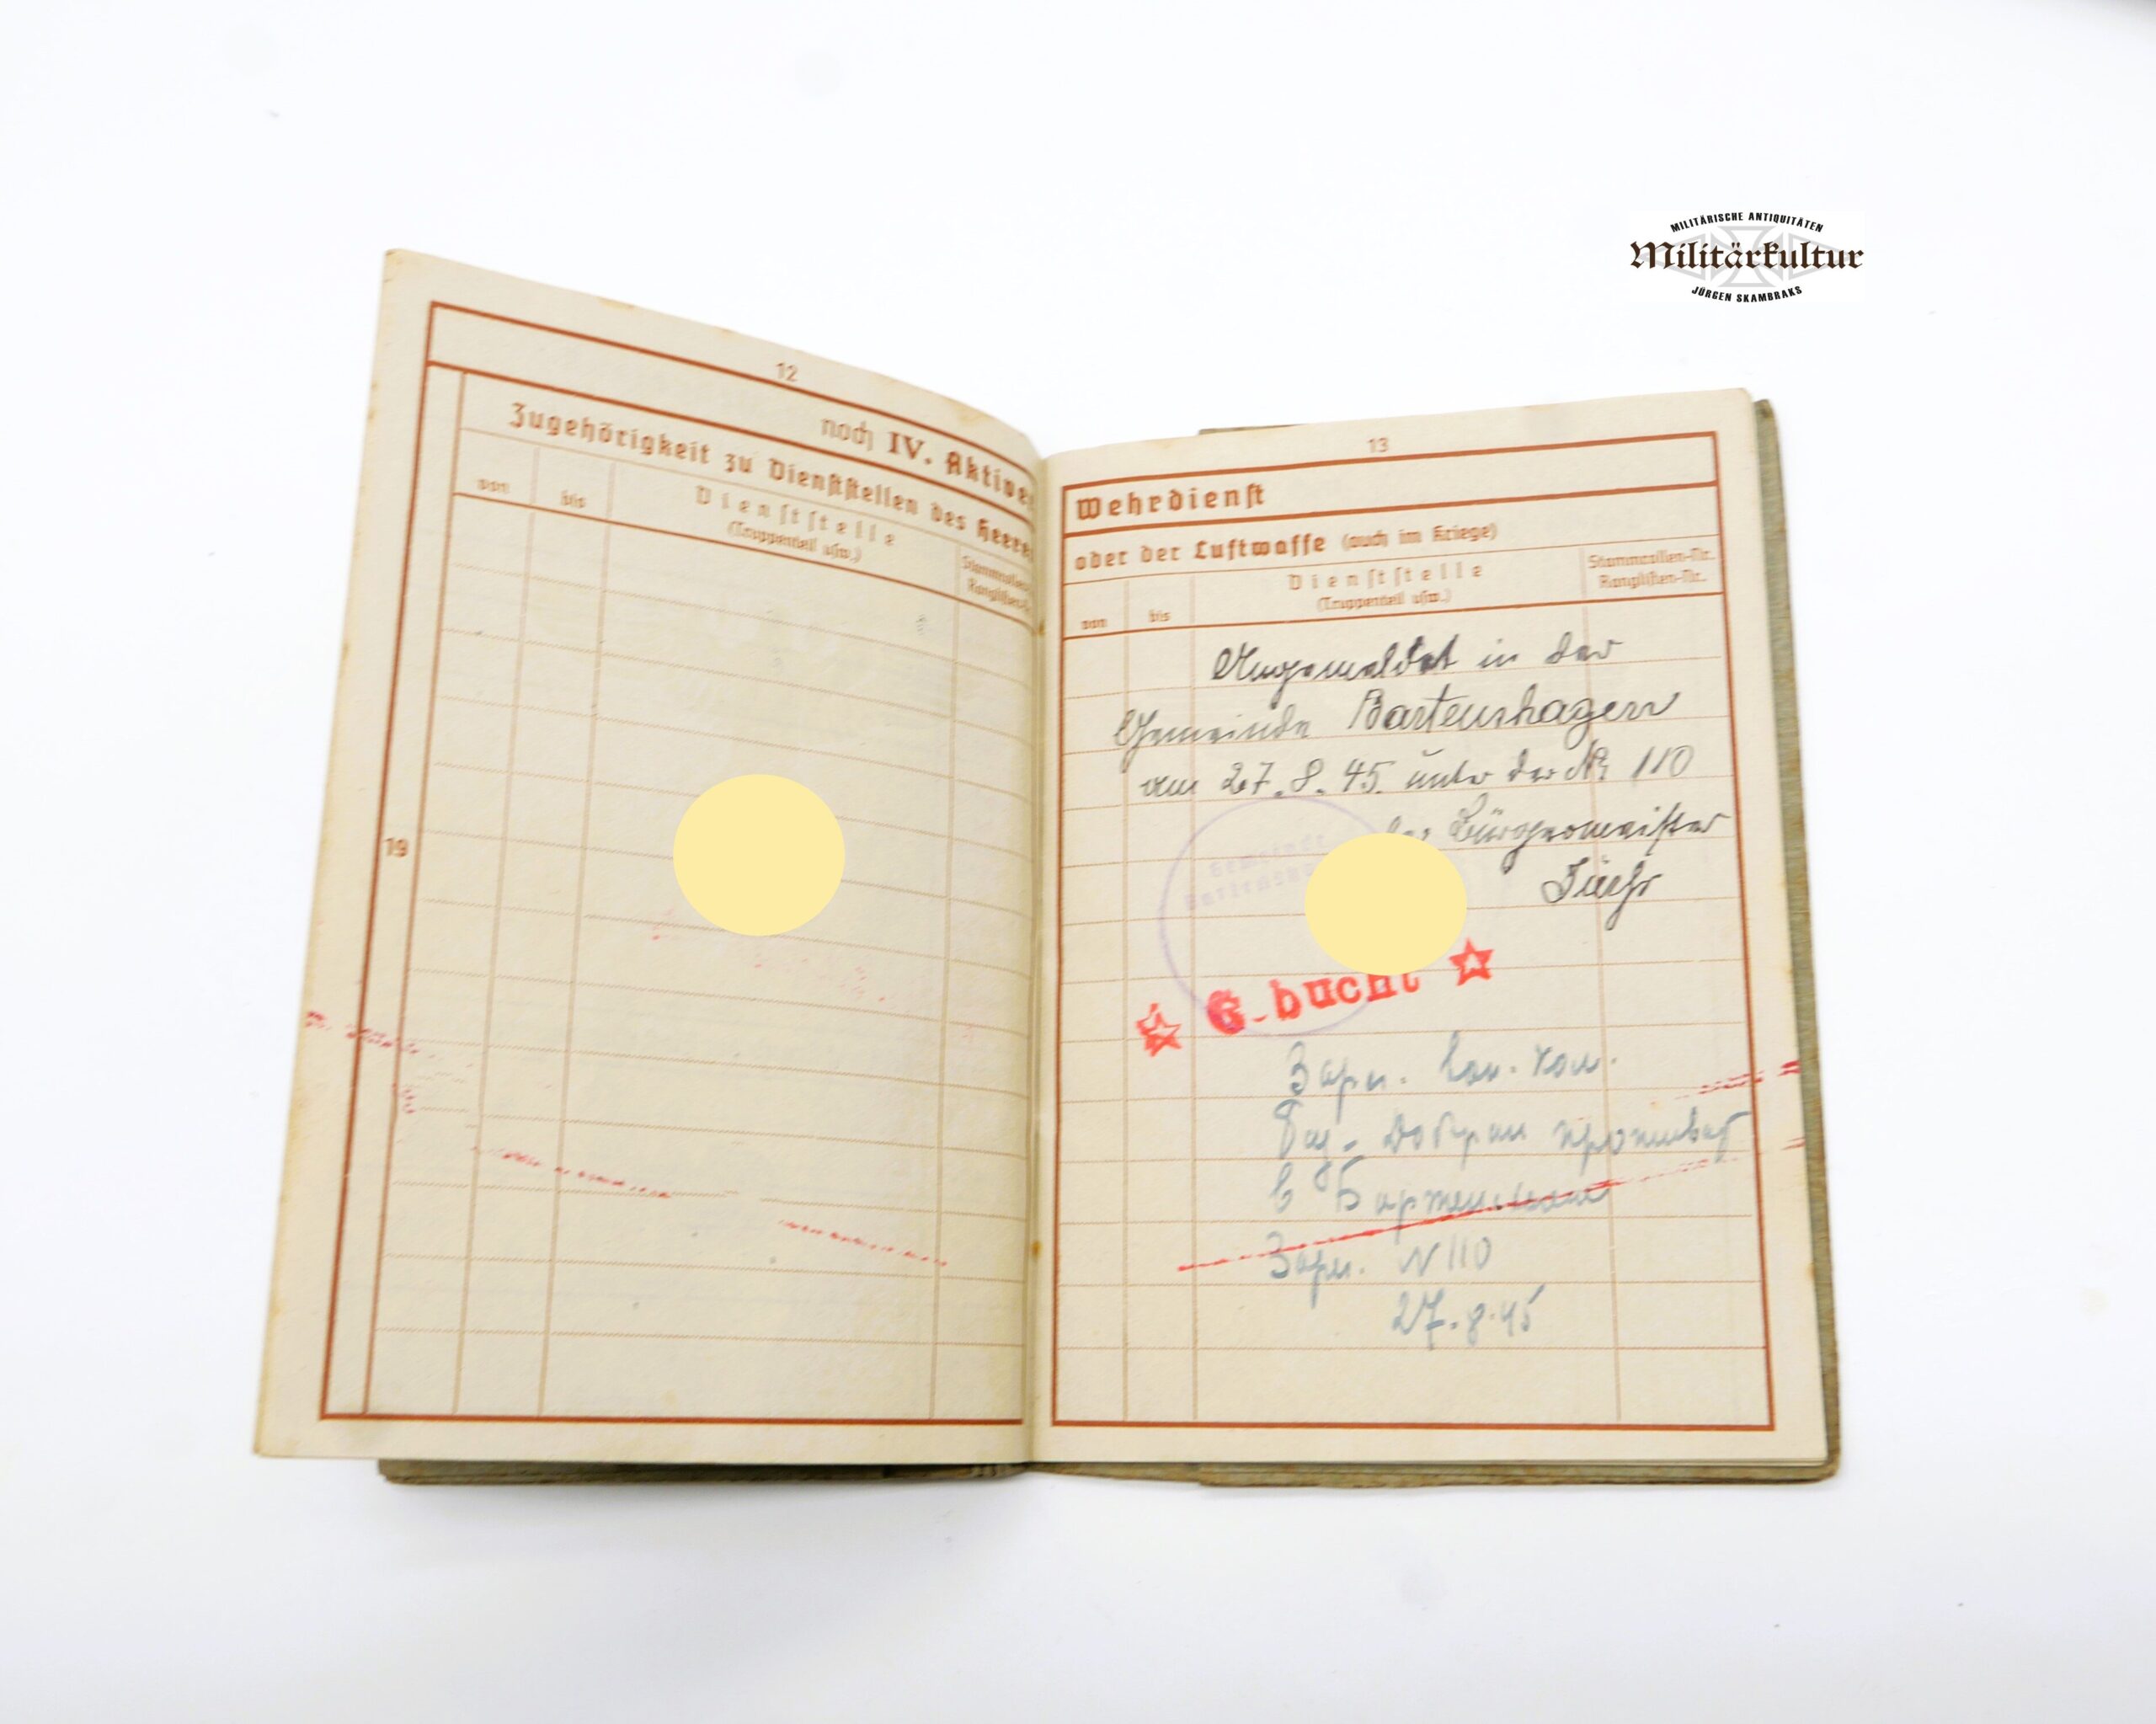 MILITÄRISCHE ANTIQUITÄTEN
Militärkultur
JÜRGEN SKAMBRAKS
12
noch IV. Aktiver
Zugehörigkeit zu Dienststellen des Heeres
von bis Dienststelle
(Truppenteil usw.)
19
13
Wehrdienst
oder der Luftwaffe (auch im Kriege)
von bis Dienststelle
(Truppenteil usw.)
Stammrollen-Nr.
Ranglisten-Nr.
Angemeldet in der
Gemeinde Bartenshagen
am 27.8.45. unter der Nr 110
Bürgermeister
Gemeinde
G.bucht
Зарег.
в
Зарег. N 110
27.8.45